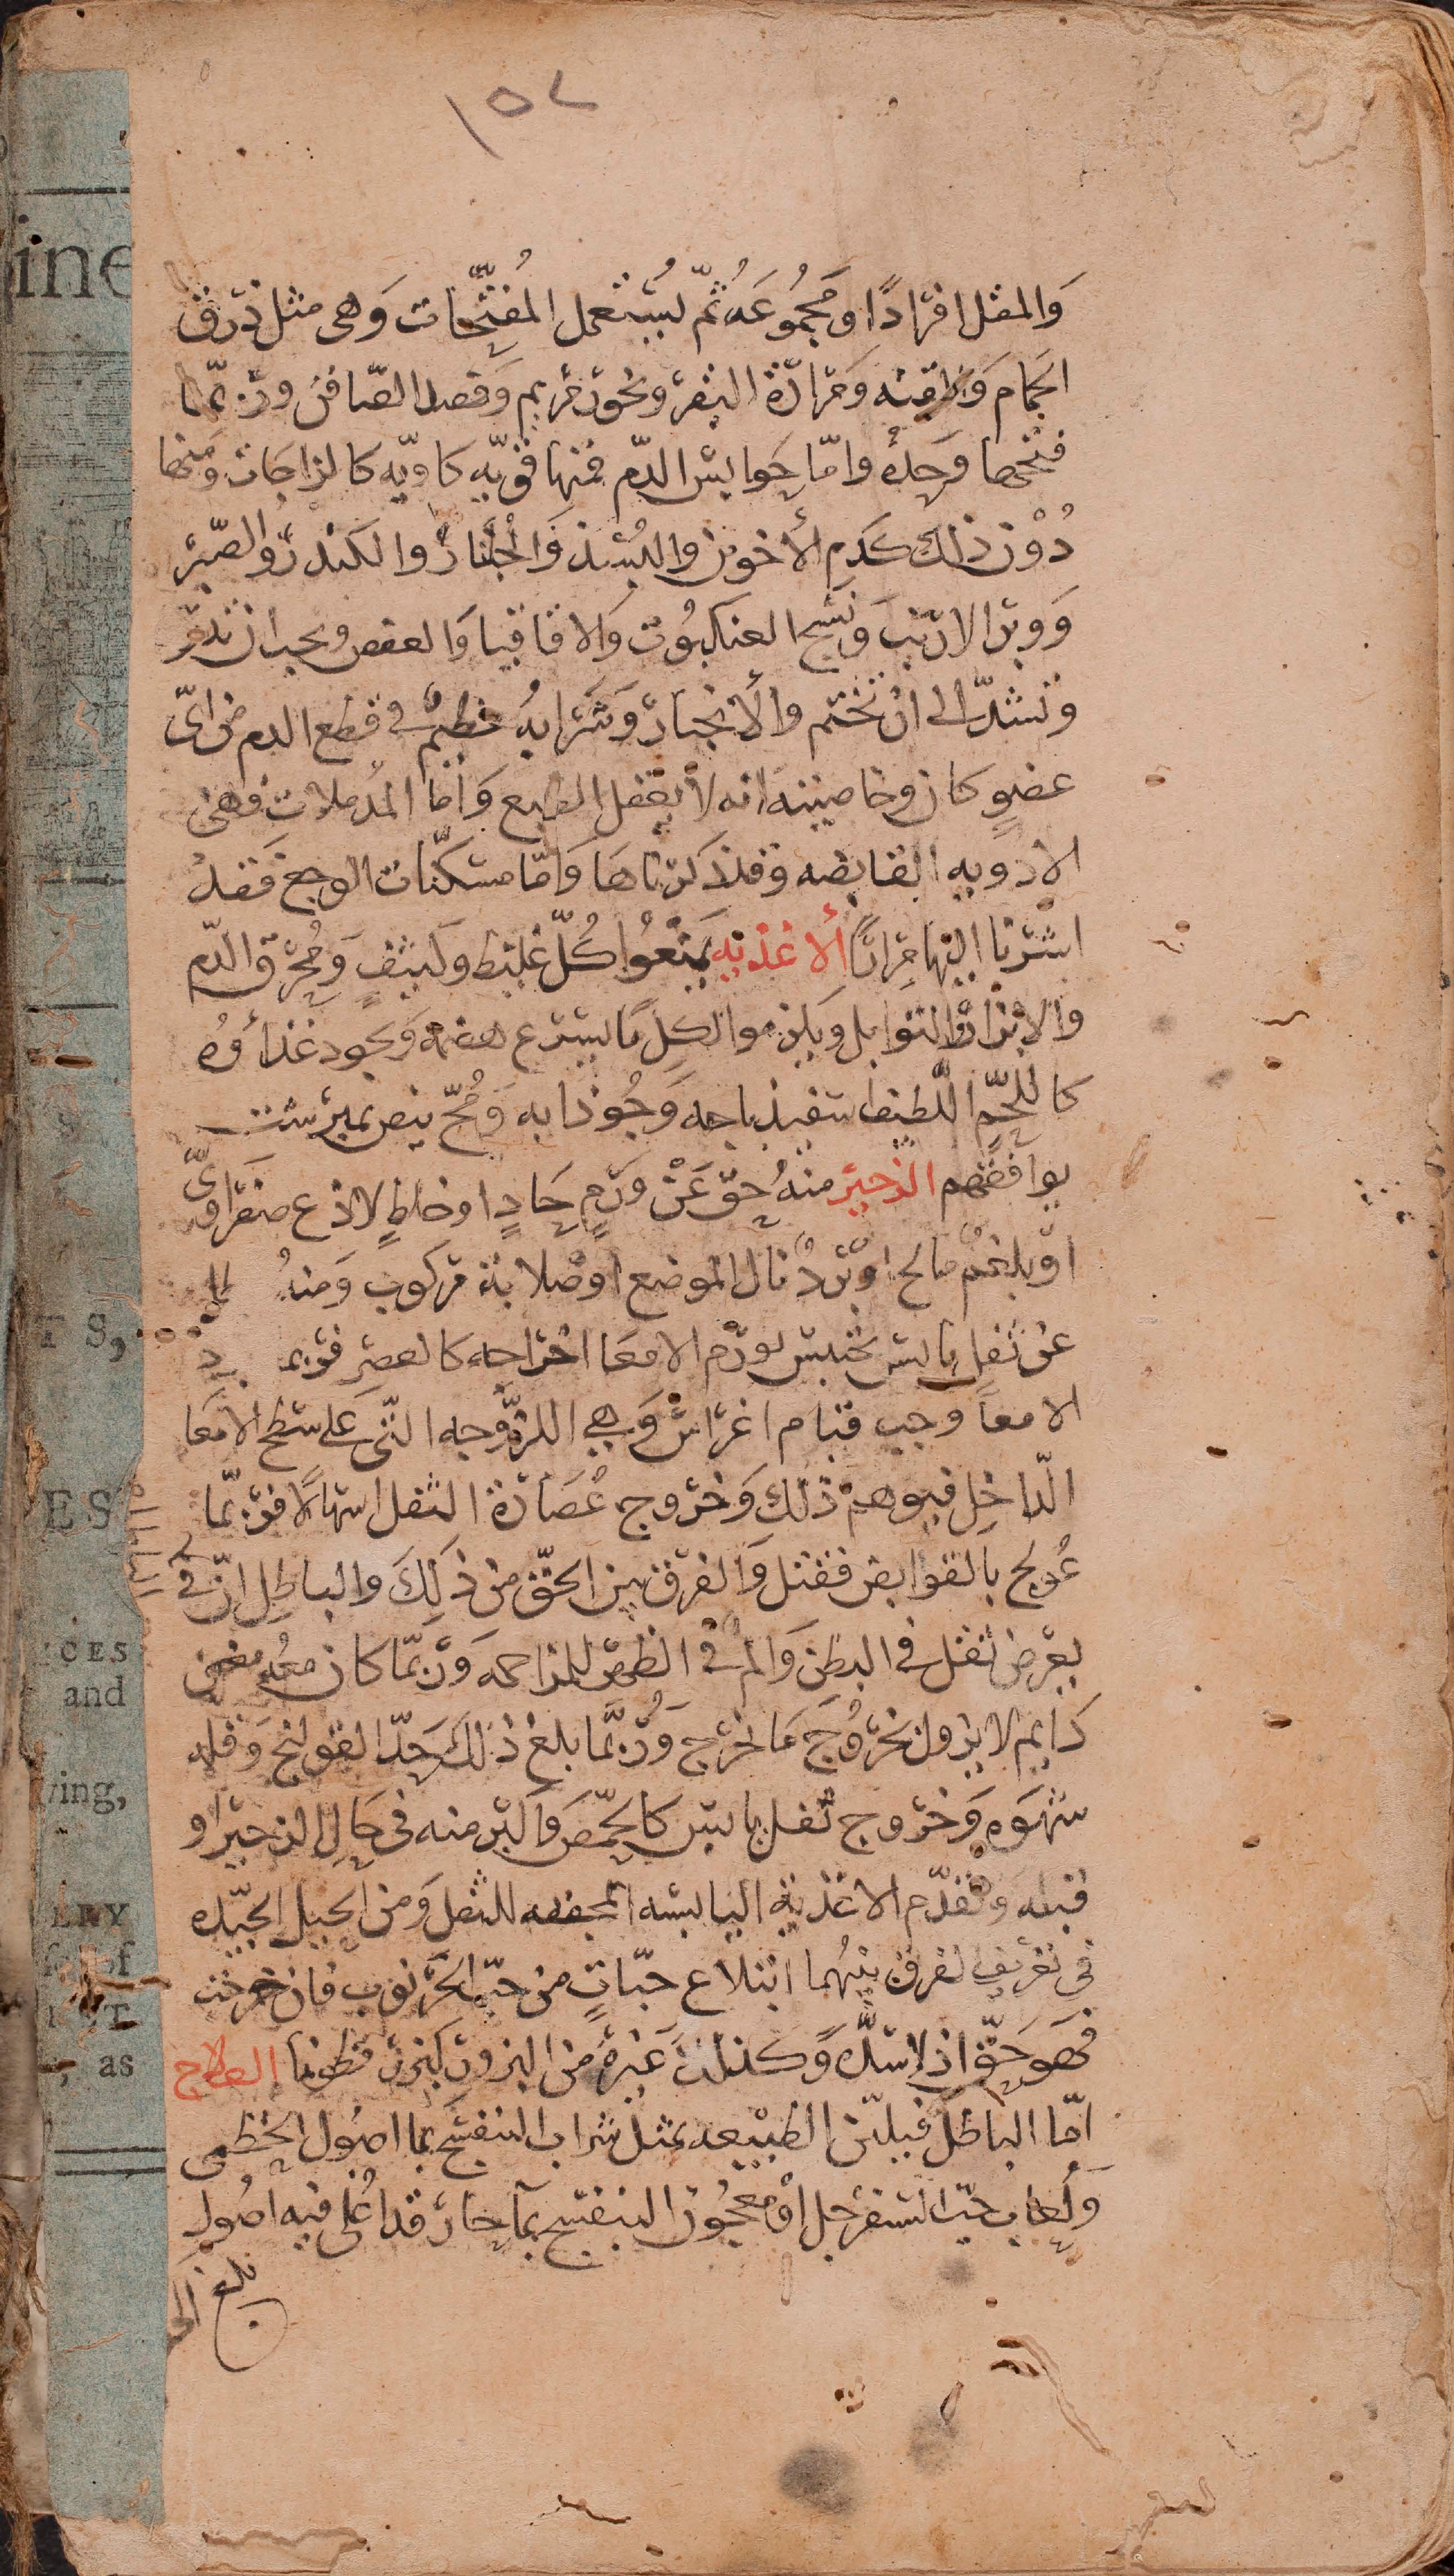 ١٥٧
ine
وَالمقل افرادًا ومَجمُوعَه ثُمّ يُستعمل المُفتِّحات وَهى مثل ذرق
الحَمام وَ وَمَرارَة البقر وبخور مريم وَفصد الصّافن ورُبمّا
فتحها وَحِدهُ وامّا حَوابس الدّم فمنها قويّه كاويّه كالزاجات وَمنها
دُوْن ذلك كدَم الأخوين والبُسّذ وَالجُلّنار والكندر والصّبر
وَوبر الارنب وَنسْج العنكبُوت وَالاقاقيا وَالعفص ويجب ان تذر
وتشدّ الى ان تختم والأنجبار وَشَرابهُ عظيمٌ فى قطع الدم من اىّ
عضوٍ كان وخاصيته انه لا يعقل الطبع وَاما المُدملات فهى
الادويه القابضه وقد ذكرناها وَامّا مسكّنات الوجع فَقدْ
اشرنا اليها مِرارًا ألاغذيه يَمنَعُوا كُلّ غليظ وكثيفٍ وَمُحرق الدّم
والابزار والتوابل وَيلزموا اكل مَا يسرع هضمه وَيجود غذاؤه
كاللّحم اللّطيف اسفيذباجه وَجُوذابه وَمُحّ بيض نيمبرشت
يوافقهم الزحير منهُ حِق عَنْ وَرَمٍ حَارٍ او خلطٍ لاذع صفراوىّ
اوْ بلغمٌ مالح اوْ بَردٌ نال الموضع اوْ صلابة مركوب وَمنهُ
عن ثفل يابس يحتبس لورم الامعا اخراجه كالعصر فربما
الامعاَ وجب قيام اغراس وَهي اللزوجه التّى على سَطح الامعَا
الدّاخِل فيوهم ذلك وَخروج عُصَارة الثفل اسهالًا فربّما
عُولج بالقوابض فقتل وَالفرق بين الحقّ من ذَلِكَ والباطِل انّ فى
يعرض ثقل فى البطن وَالم فى الظهر للمزاحمه وَربمّا كان معهُ مغص
دَايم لا يزول بخرُوجَ مَا خرج وَرُبَّما بلغ ذلك حَدّ القولنج وَقله
شهوَه وَخروج ثفل يابس كالحِمّص وَاكبر منه فى حَال الزحير او
قبله وَتقدّم الاغذية اليابسه المجففه للثفل وَمن الحيل الجيّده
فى تعريف الفرق بينهُما ابتلاع حبّاتٍ من حبّ الخَرنوب فان خرجت
فهَو حَقّ اذ لا سدّه وَكذلك غيرهُ من البزور كبزر قطونا العلاج
امّا الباطل فيليّن الطبيعه بمثل شراب البنفسَج بمَا اصُول الخطمى
وَلُعاب حَبّ السّفرجل اوْ معجُون البنفسج بمآ حار قد اُغلى فيه اصُول
بلغ
T S,
ES
ICES
and
ving,
ERY
of
as